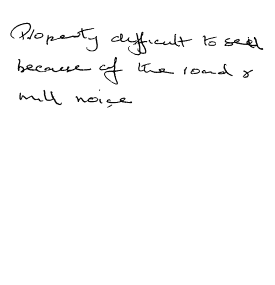 Property difficult to sell
because of the road &
mill noise